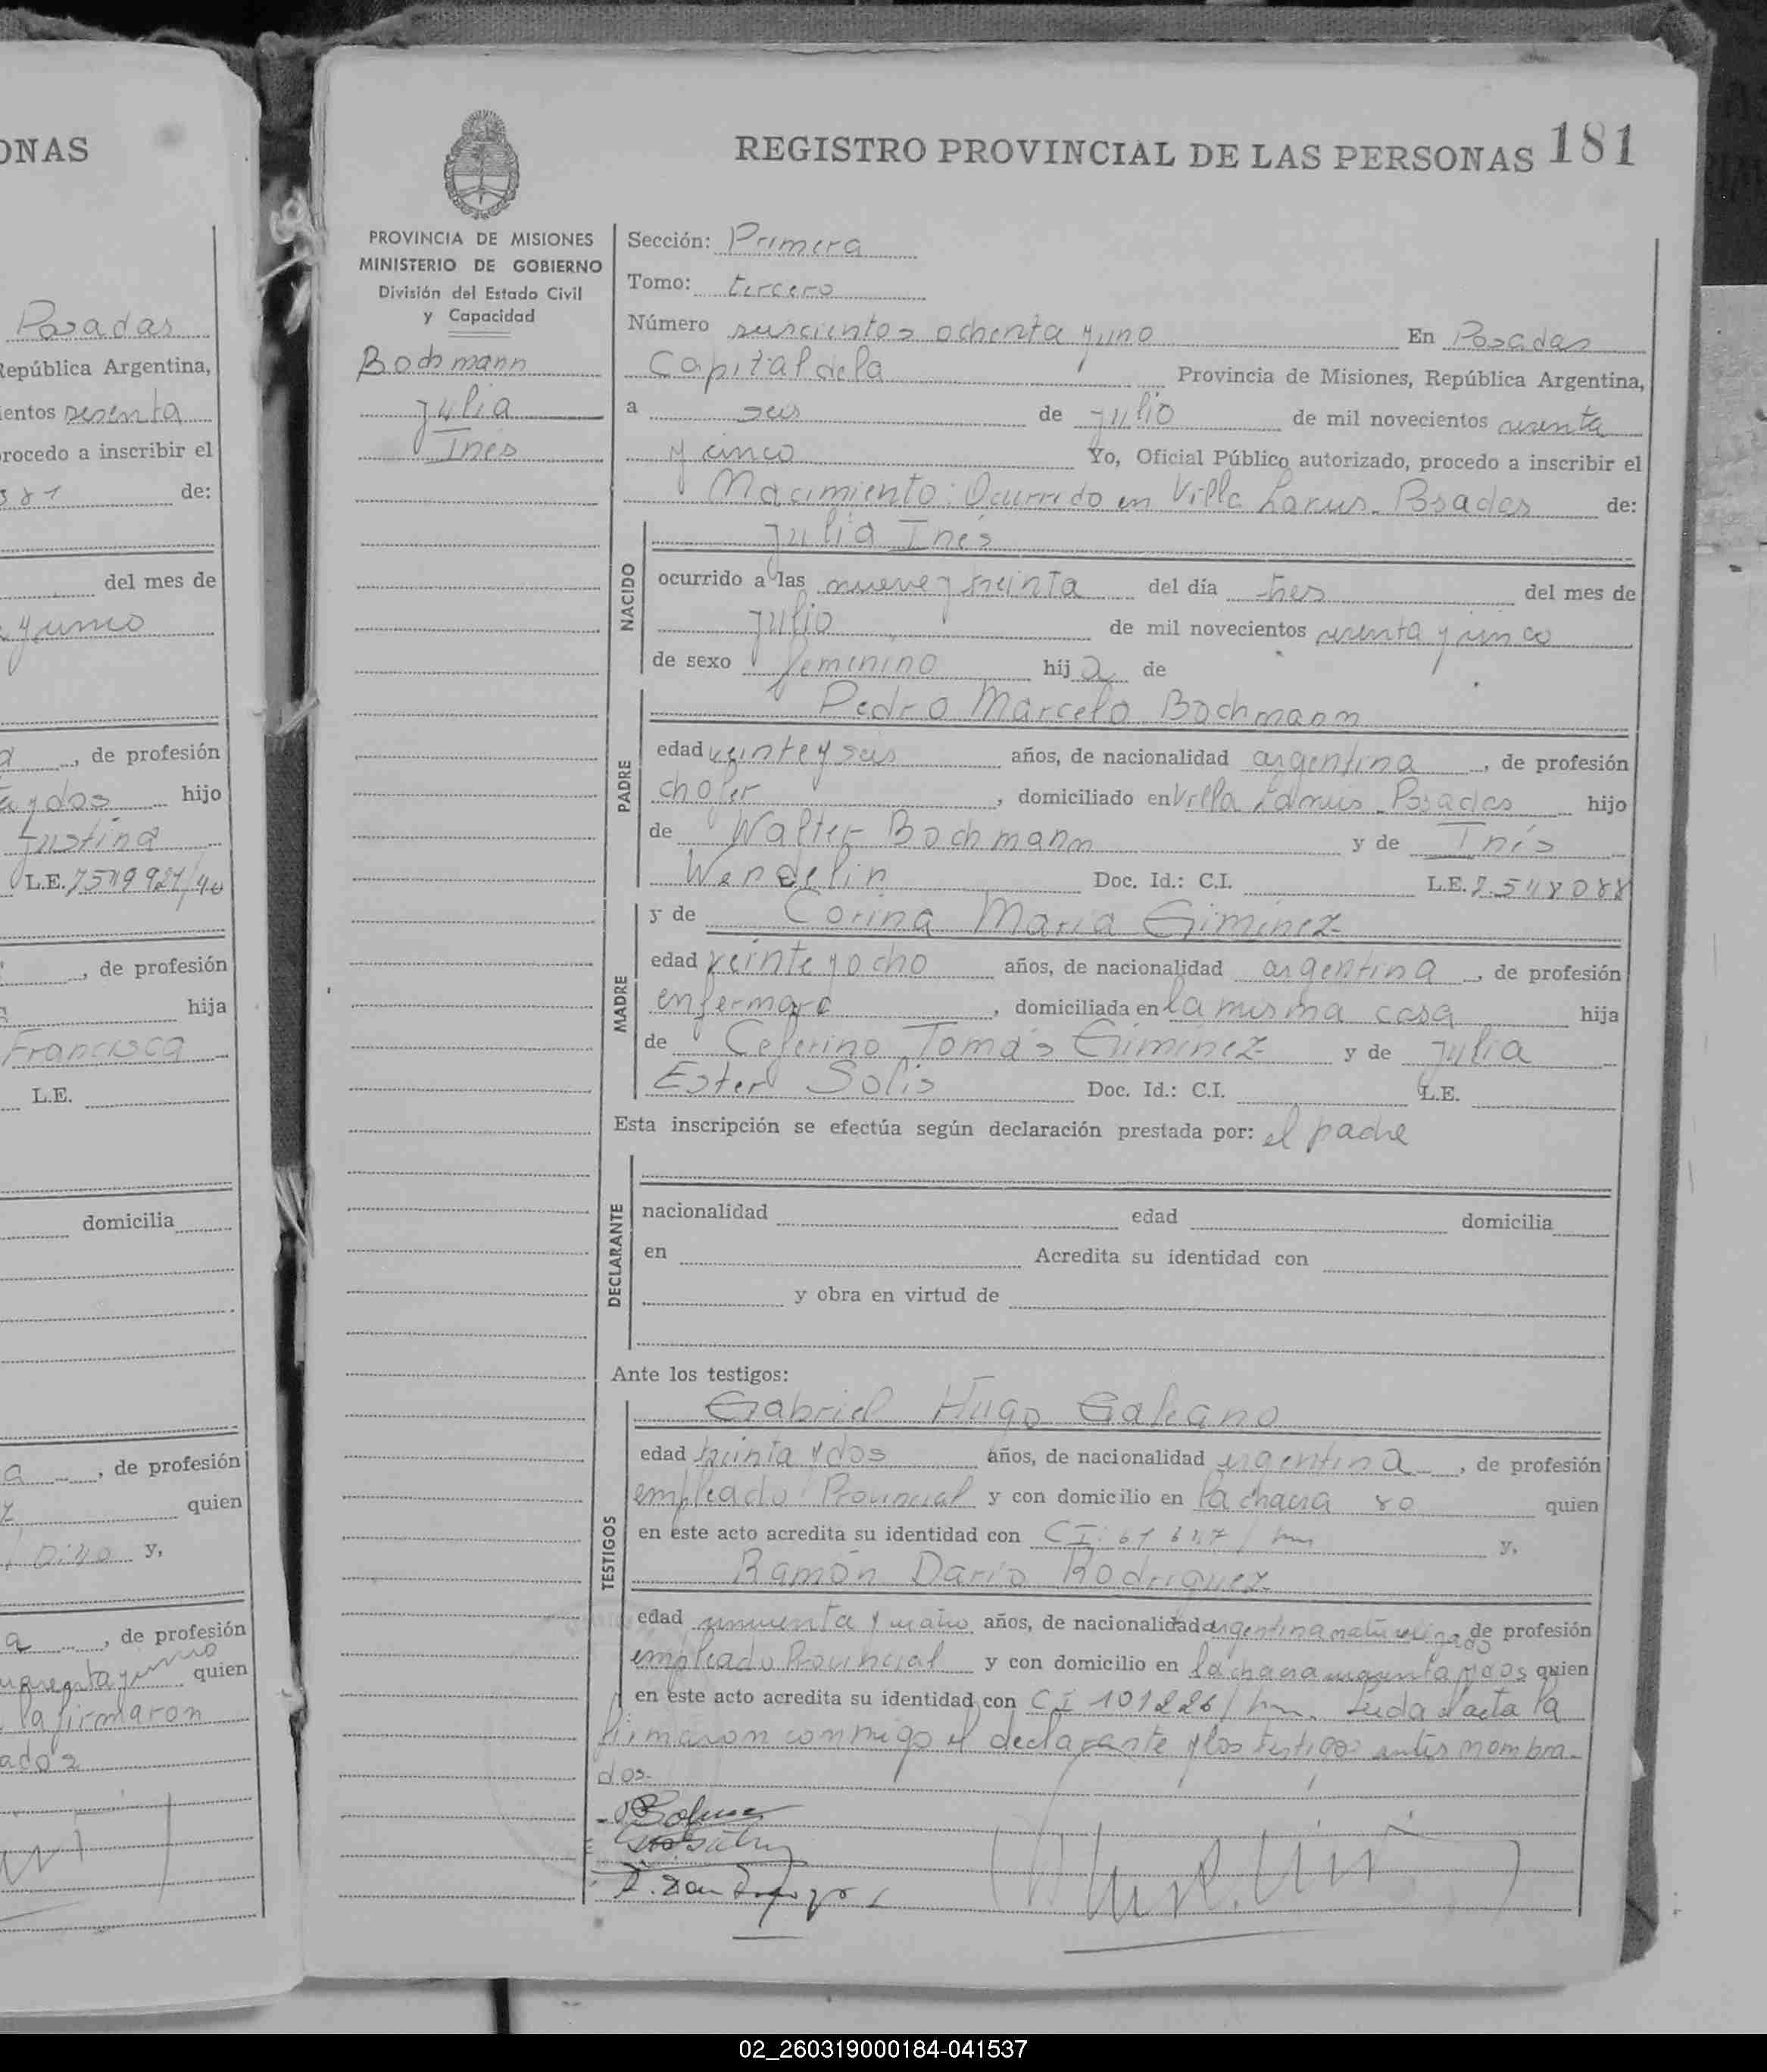 ONAS
Posadas
República Argentina,
ientos sesenta
procedo a inscribir el
381 de:
del mes de
y cinco
, de profesión
a y dos hijo
Justina
L.E.
, de profesión
hija
Francisca
L.E.
domicilia
a , de profesión
z quien
y,
a , de profesión
quien
la firmaron
ados
REGISTRO PROVINCIAL DE LAS PERSONAS 181
PROVINCIA DE MISIONES
MINISTERIO DE GOBIERNO
División del Estado Civil
y Capacidad
Bochmann
Julia
Inés
Sección: Primera
Tomo: tercero
Número seiscientos ochenta y uno En Posadas
Capital de la Provincia de Misiones, República Argentina,
a seis de julio de mil novecientos sesenta
y cinco Yo, Oficial Público autorizado, procedo a inscribir el
Nacimiento: Ocurrido en Villa Lanus. Posadas de:
NACIDO
Julia Inés
ocurrido a las nueve y treinta del día tres del mes de
julio de mil novecientos sesenta y cinco
de sexo femenino hija de
PADRE
Pedro Marcelo Bochmann
edad veinte y seis años, de nacionalidad argentina, de profesión
chofer, domiciliado en Villa Lanus Posadas hijo
de Walter Bochmann y de Inés
Wendelin Doc. Id.: C.I. L.E. 7.548088
MADRE
y de Corina Maria Giminez
edad veinte y ocho años, de nacionalidad argentina, de profesión
enfermera, domiciliada en la misma casa hija
de Ceferino Tomás Giminez y de Julia
Ester Solis Doc. Id.: C.I. L.E.
Esta inscripción se efectúa según declaración prestada por: el padre
DECLARANTE
nacionalidad edad domicilia
en Acredita su identidad con
y obra en virtud de
Ante los testigos:
TESTIGOS
Gabriel Hugo Galeano
edad treinta y dos años, de nacionalidad argentina, de profesión
empleado Provincial y con domicilio en la chacra 80 quien
en este acto acredita su identidad con CI: y,
Ramón Dario Rodriguez
edad años, de nacionalidad argentina naturalizado de profesión
empleado Provincial y con domicilio en la chacra y dos quien
en este acto acredita su identidad con CI 101226 Leida el acta la
firmaron conmigo el declarante y los testigos antes nombra-
dos-
02_260319000184-041537